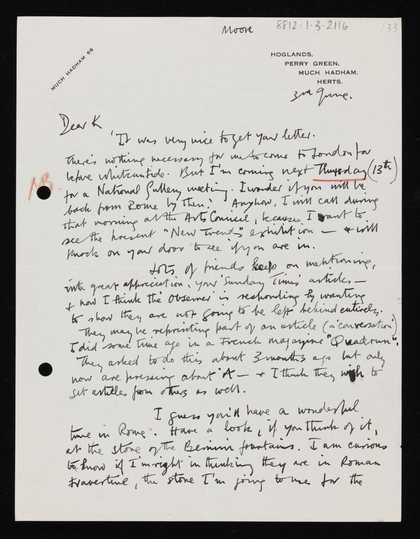 Moore
8812-1-3-2116
133
MUCH HADHAM 66
HOGLANDS,
PERRY GREEN,
MUCH HADHAM,
HERTS.
3rd June.
Dear K
It was very nice to get your letter.
There's nothing necessary for me to come to London for
before whitsuntide. But I'm coming next Thursday (13th)
for a National Gallery meeting. I wonder if you will be
back from Rome by then? Anyhow, I will call during
that morning at the Arts Council, because I want to
see the present "New Trends" exhibition — & will
knock on your door to see if you are in.
Lots of friends keep on mentioning,
with great appreciation, your Sunday Times articles —
& now I think the Observer is responding by wanting
to show they are not going to be left behind entirely.
They may be reprinting part of an article (a 'conversation')
I did some time ago in a French magazine "Quadrum".
They asked to do this about 3 months ago but only
now are pressing about it — & I think they wish to
get articles from others as well.
I guess you'll have a wonderful
time in Rome. Have a look, if you think of it,
at the stone of the Bernini fountains. I am curious
to know if I'm right in thinking they are in Roman
travertine, the stone I'm going to use for the